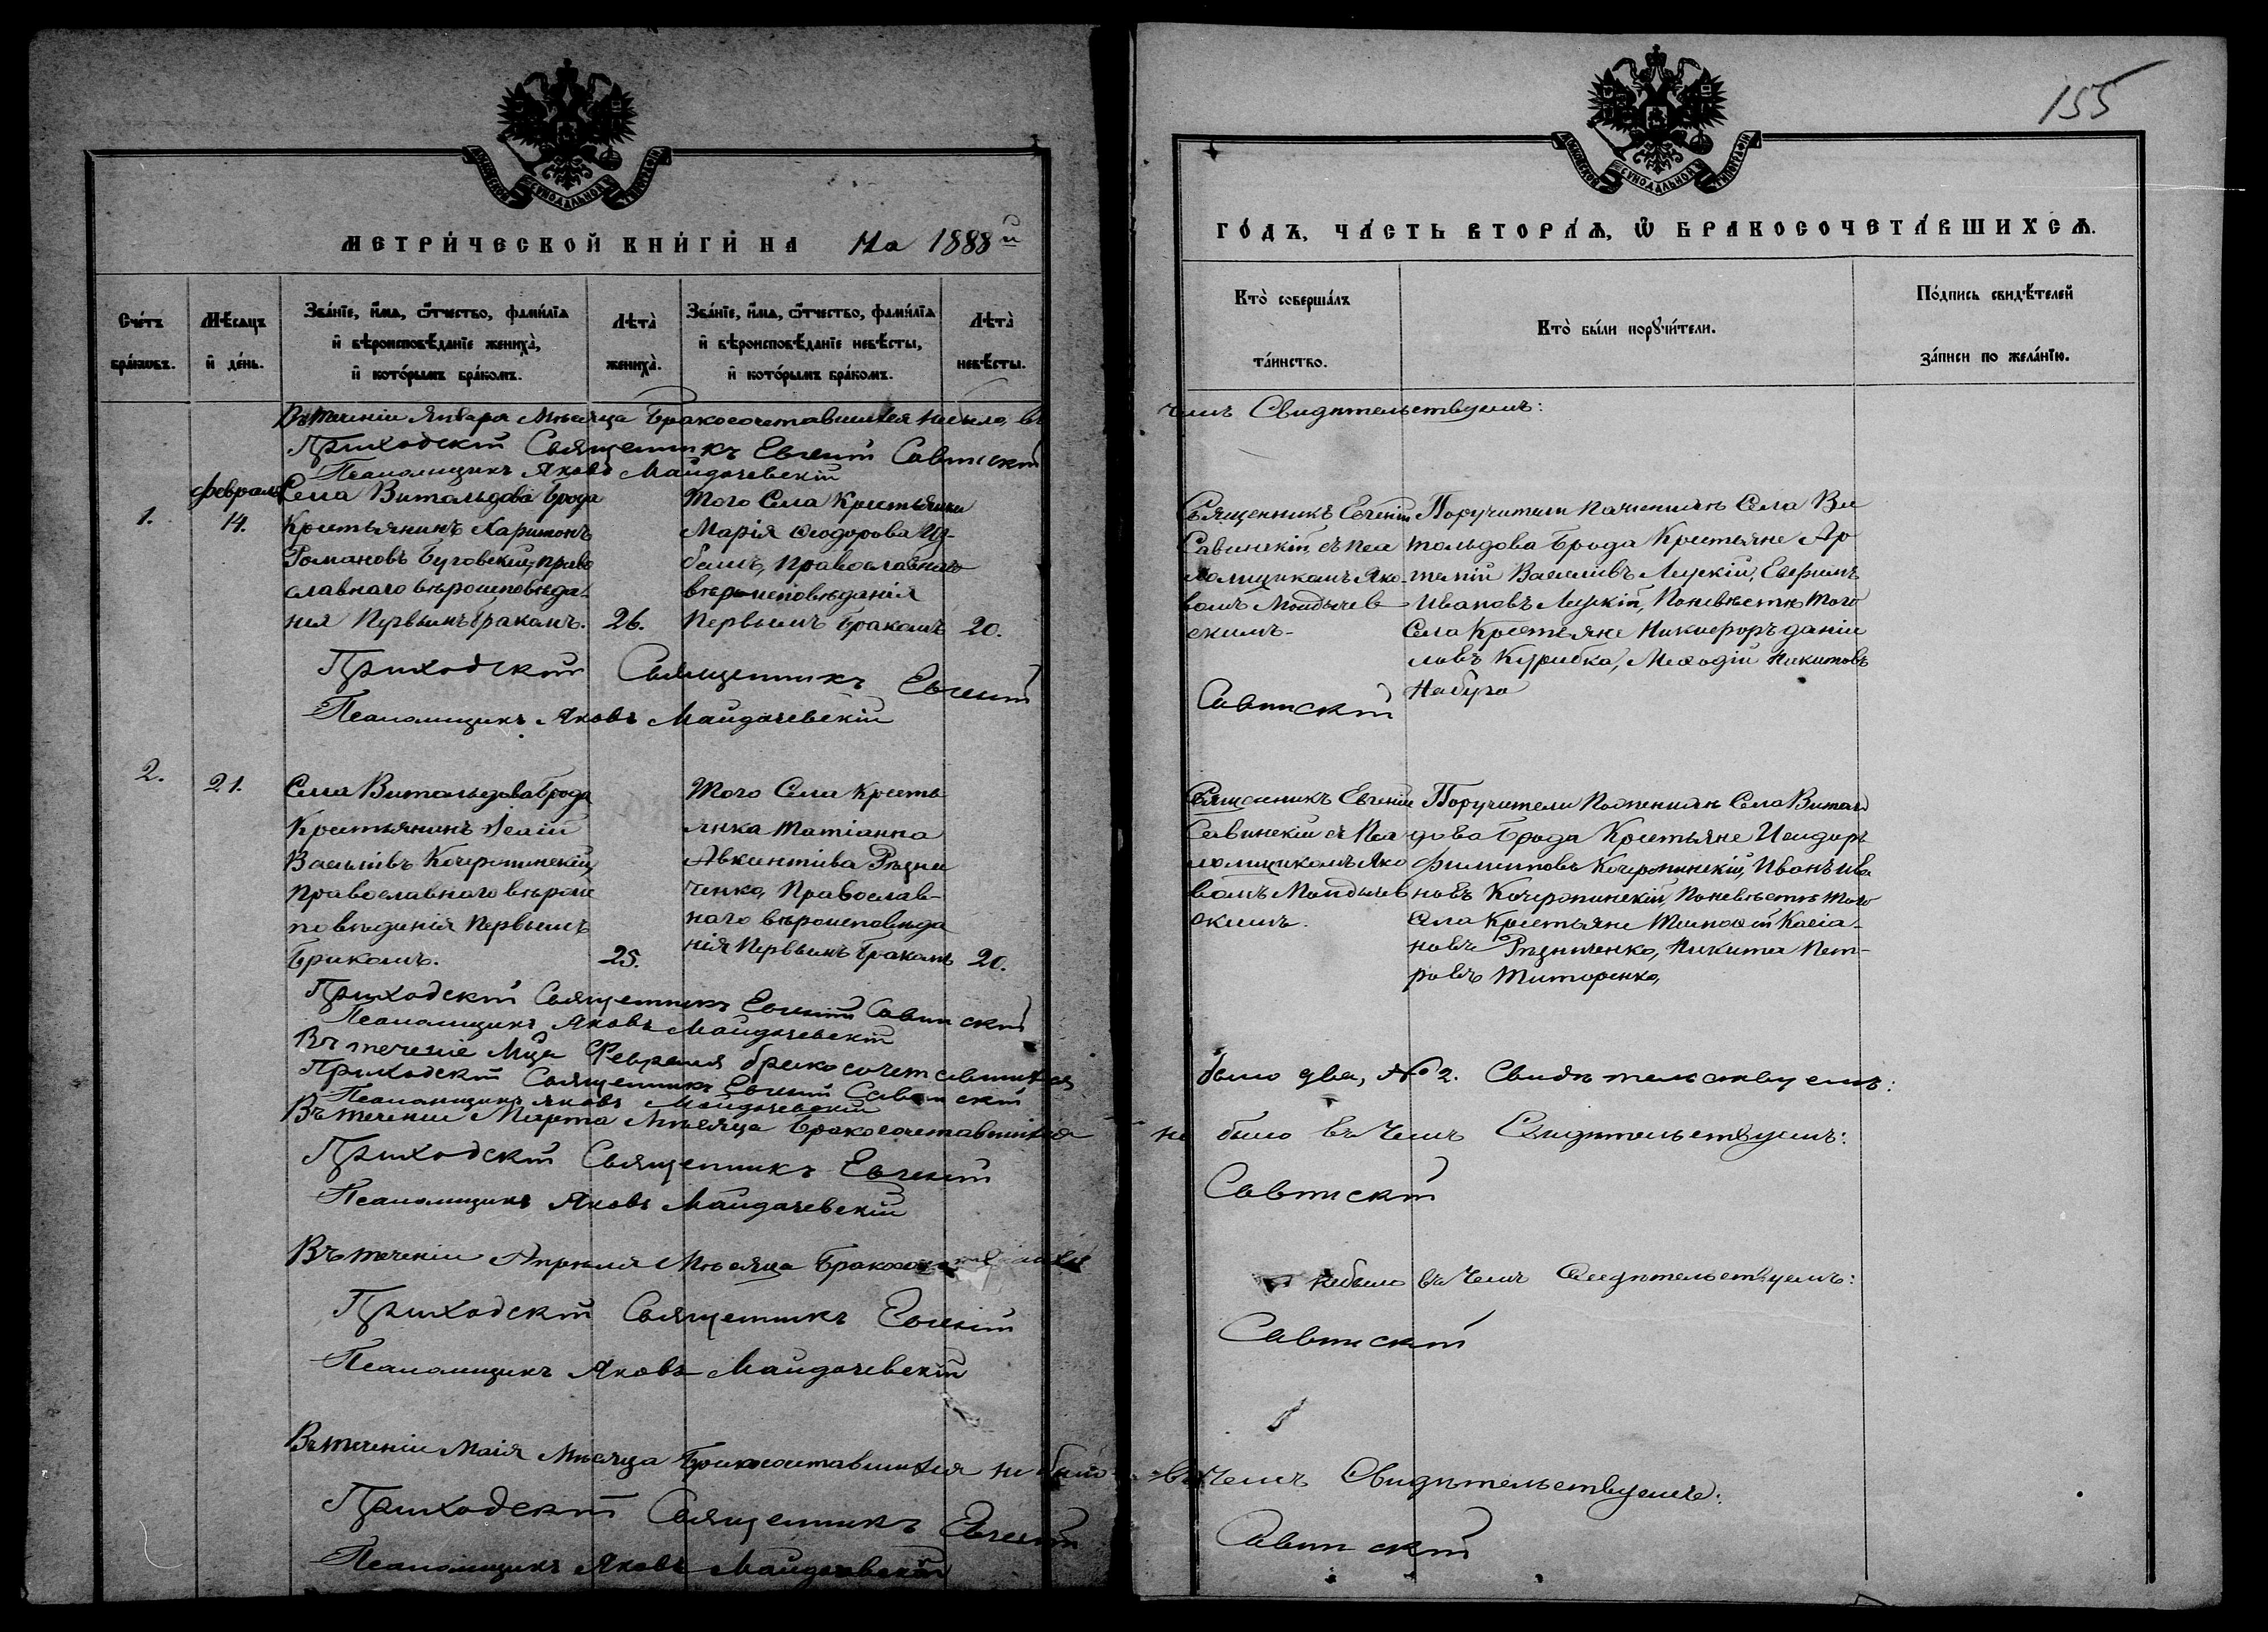 155
МЕТРИ́ЧЕСКОЙ КНИ́ГИ НА На 1888й
ГО́ДЪ, ЧА́СТЬ ВТОРА́Ѧ, Ѿ БРАКОСОЧЕТА́ВШИХСѦ.
Сче́тъ бра́кѡвъ.
Мѣ́сѧцъ и҆ де́нь.
Зва́нїе, и҆́мѧ, ѻ҆́тчество, фами́лїѧ
и҆ вѣроисповѣ́данїе жениха̀,
и҆ кото́рымъ бра́комъ.
Лѣта̀ жениха̀.
Зва́нїе, и҆́мѧ, ѻ҆́тчество, фами́лїѧ
и҆ вѣроисповѣ́данїе невѣ́сты,
и҆ кото́рымъ бра́комъ.
Лѣта̀ невѣ́сты.
Кто̀ соверша́лъ
та́инство.
Кто̀ бы́ли порꙋчи́тели.
По́дпись свидѣ́телей
за́писи по жела́нїю.
Въ теченіи Января Мѣсяца Бракосочетавшихся небыло, въ
чемъ Свидѣтельствуемъ:
Приходскій Священникъ Евгеній Савинскій
Псаломщикъ Яковъ Майдачевскій
1.
Февраль
14.
Села Витольдова Брода
Крестьянинъ Харитонъ
Романовъ Буговскій, право
славнаго вѣроисповѣда-
нія Первымъ бракомъ.
26.
Того Села Крестьянка
Марія Ѳеодорова
православнаго
вѣроисповѣданія
Первымъ бракомъ
20.
Священникъ Евгеній
Савинскій съ Пса
ломщикомъ Яко-
вомъ Мойдычев
скимъ-
Поручители по женихѣ Села Ви
тольдова Брода Крестьяне Ар
темій Василивъ Луцкій, Евфимъ
Ивановъ Луцкій, По невѣстѣ того
Села Крестьяне Никифоръ Даніи
ловъ Курибка, Меѳодій Никитовъ
Набуга
Приходскій Священникъ Евгеній
Савинскій
Псаломщикъ Яковъ Майдачевскій
2.
21.
Села Витольдова Брода
Крестьянинъ
Василивъ Кочеропинскій,
Православнаго вѣроис
повѣданія Первымъ
Бракомъ.
25.
Того Села Кресть
янка Татіанна
Авксентіева Рѣзни
ченко, Православ-
наго вѣроисповѣда
нія Первымъ Бракомъ
20.
Священникъ Евгеній
Савинскій съ Пса
ломщикомъ Яко
вомъ Мойдычев
скимъ.
Поручители По женихѣ Села Витоль
дова Брода Крестьяне Исидоръ
Филиповъ Кочеропинскій, Иванъ Ива
новъ Кочеропинскій, По невѣстѣ того
Села Крестьяне Тимоѳей Касіа-
новъ Рѣзниченко, Никита Пет-
ровъ Титоренко,
Приходскій Священникъ Евгеній Савинскій
Псаломщикъ Яковъ Майдачевскій
Въ теченіе Мца Февраля бракосочетавшихся
было два, № 2. Свидѣтельствуемъ:
Приходскій Священникъ Евгеній Савинскій
Псаломщикъ Яковъ Майдачевскій
Въ теченіи Марта Мѣсяца Бракосочетавшихся
не было въ чемъ Свидѣтельствуемъ:
Приходскій Священникъ Евгеній
Савинскій
Псаломщикъ Яковъ Майдачевскій
Въ теченіи Апрѣля Мѣсяца
небыло въ чемъ Свидѣтельствуемъ:
Приходскій Священникъ Евгеній
Савинскій
Псаломщикъ Яковъ Майдачевскій
Въ теченіи Маія Мѣсяца Бракосочетавшихся не было
въ Чемъ Свидѣтельствуемъ:
Приходскій Священникъ Евгеній
Савинскій
Псаломщикъ Яковъ Майдачевскій